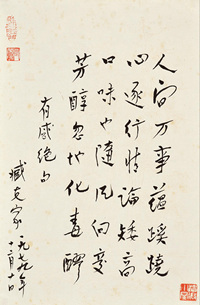 人间万事蕴蹊跷
心逐行情论矮高
口味也随风向变
芳醇忽地化毒醪
有感绝句
臧克家
一九七九年
十二月十日